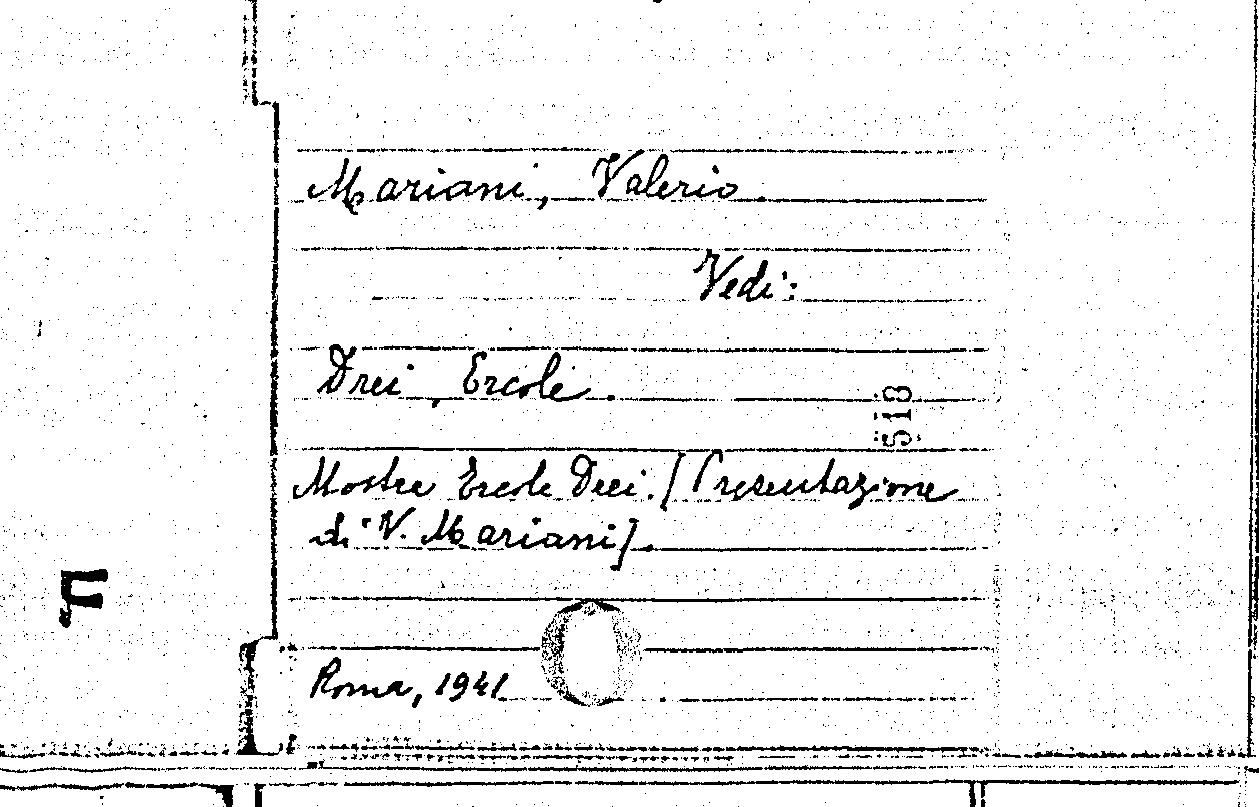 Mariani, Valerio.
Vedi:
Drei, Ercole.
513
Mostra Ercole Drei. [Presentazione
di V. Mariani].
Roma, 1941